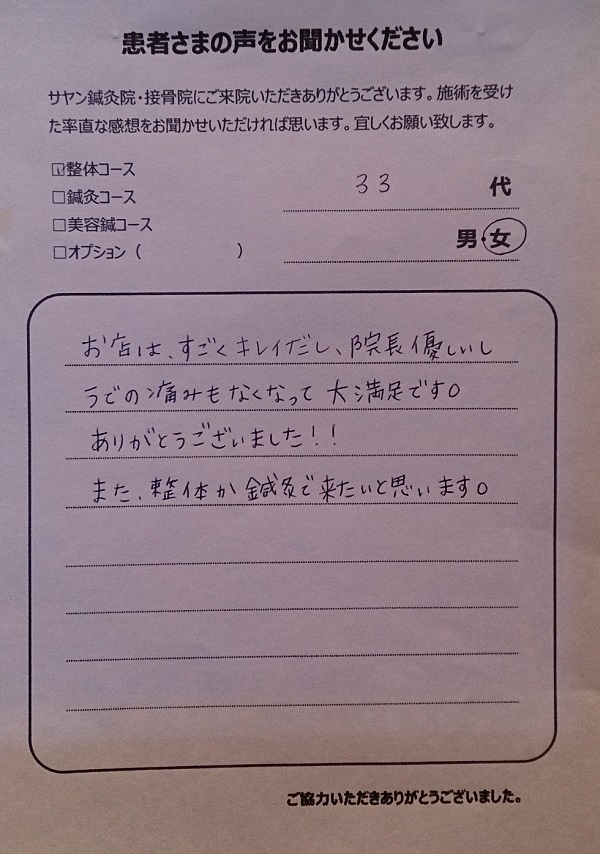 患者さまの声をお聞かせください
サヤン鍼灸院・接骨院にご来院いただきありがとうございます。施術を受け
た率直な感想をお聞かせいただければ思います。宜しくお願い致します。
☑整体コース
□鍼灸コース
□美容鍼コース
□オプション（　　　　　）
33 代
男・女
お店は、すごくキレイだし、院長優しいし
うでの痛みもなくなって大満足です。
ありがとうございました！！
また、整体か鍼灸で来たいと思います。
ご協力いただきありがとうございました。